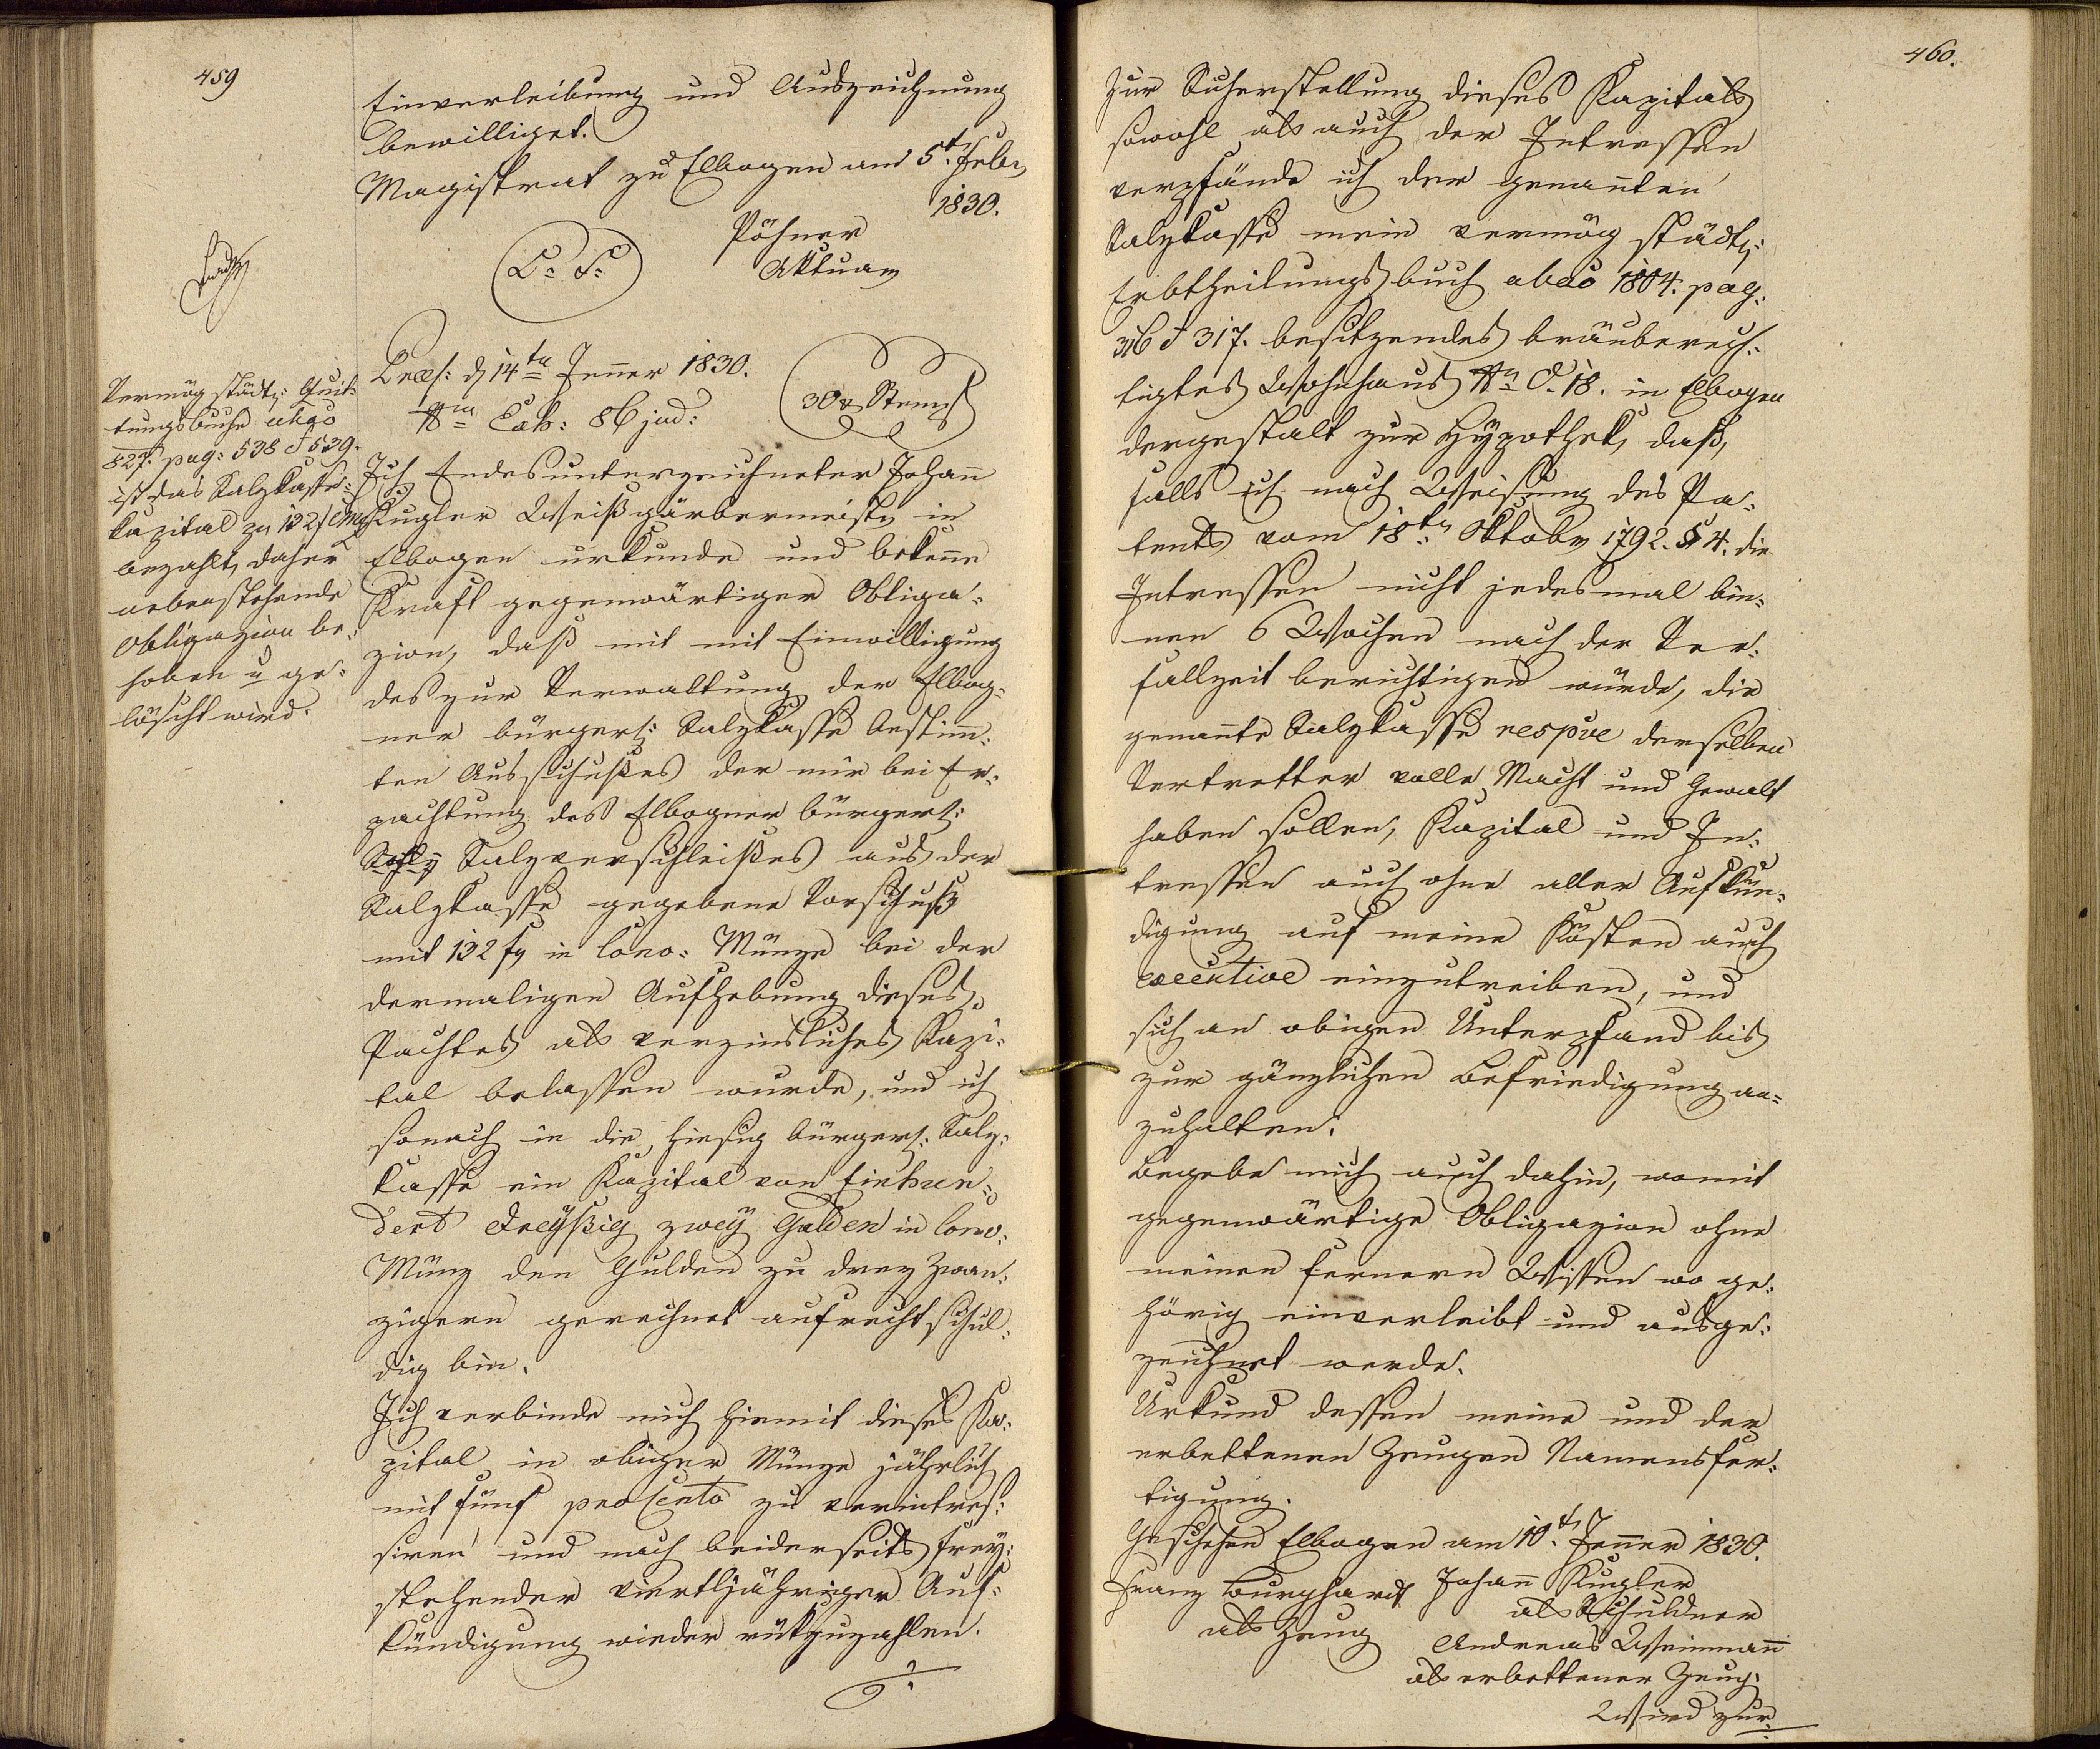 459
Einverleibung und Auszeichnung
bewilliget.
Magistrat zu Elbogen am 5t. Febr
1830.
L. S.
Pöhner
Aktuar
Præs: d 14ten Jenner 1830.
Nm Exh: 86 jud:
30 x Stempl
Vermög städt: Quit-
tungsbuche abao
827. pag: 538 & 539.
ist das Salzkasse-
kapital zu 132 f CMz
bezahlt, daher
nebenstehende
Obligazion be-
hoben u ge-
löscht wird.
Ich Endesunterzeichneter Johann
Kugler Weißgärbermeister in
Elbogen urkunde und bekenne
Kraft gegenwärtiger Obliga-
zion, daß mit mit Einwilligung
des zur Verwaltung der Elbog-
ner bürgerl: Salzkasse bestimm-
ten Ausschußes der mir bei Er-
pachtung des Elbogner bürgerl:
Salzverschleißes aus der
Salzkasse gegebene Vorschuß
mit 132 f in Conv: Münze bei der
dermaligen Aufhebung dieses
Pachtes als verzinsliches Kapi-
tal belassen wurde, und ich
sonach in die hiesig bürgerl. Salz-
kasse ein Kapital von Einhun-
dert dreyßig zwey Gulden in Conv:
Münz den Gulden zu drey Zwan-
zigern gerechnet aufrecht schul-
dig bin.
Ich verbinde mich hiemit dieses Ka-
pital in obiger Münze jährlich
mit fünf pro Cento zu verintres-
siren und nach beiderseits frey-
stehender viertljähriger Auf-
kündigung wieder rükzuzahlen.
460.
Zur Sicherstellung dieses Kapitals
sowohl als auch der Intressen
verpfände ich der genannten
Salzkasse mein vermög städt:
Erbtheilungsbuch abao 1804. pag:
316 & 317. besitzendes bräuberech-
tigtes Wohnhaus Nro C. 18. in Elbogen
dergestalt zur Hypothek, daß,
falls ich nach Weisung des Pa-
tents vom 18ten Oktober 1792. § 4. die
Intressen nicht jedesmal bin-
nen 6 Wochen nach der Ver-
fallzeit berichtigen würde, die
genannte Salzkasse respve derselben
Vertretter volle Macht und Gewalt
haben sollen, Kapital und In-
tressen auch ohne aller Aufkün-
digung auf meine Kösten auch
executive einzutreiben, und
sich an obigen Unterpfand bis
zur gänzlichen Befriedigung an-
zuhalten.
Begebe mich auch dahin, womit
gegenwärtige Obligazion ohne
meinen fernern Wissen wo ge-
hörig einverleibt und ausge-
zeichnet werde.
Urkund dessen meine und der
erbettenen Zeugen Namensfer-
tigung.
Geschehen Elbogen am 10t. Jenner 1830.
Franz Burghardt Johann Kugler
als Zeug als Schuldner
Andreas Weinmann
als erbettener Zeug.
Wird zur